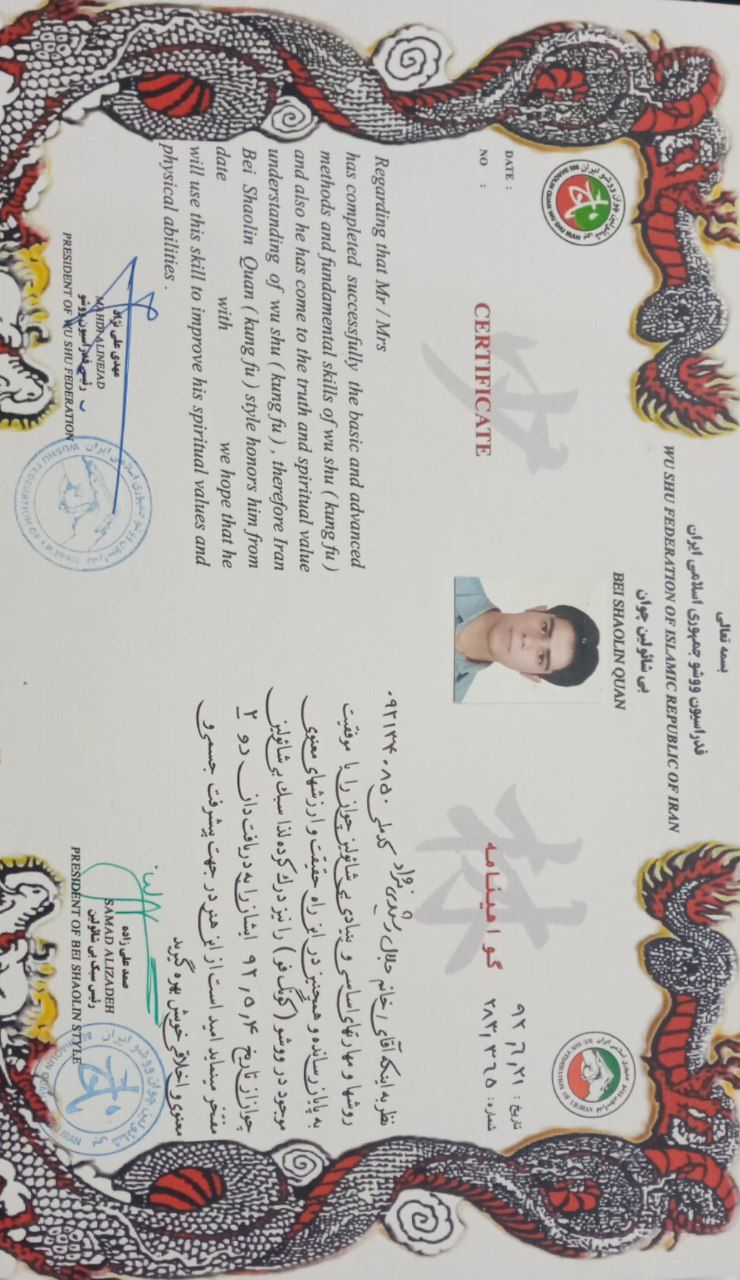 بسمه تعالی
فدراسیون ووشو جمهوری اسلامی ایران
WU SHU FEDERATION OF ISLAMIC REPUBLIC OF IRAN
بی شائولین جوان
BEI SHAOLIN QUAN
DATE :
NO :
CERTIFICATE
Regarding that Mr / Mrs
has completed successfully the basic and advanced
methods and fundamental skills of wu shu ( kung fu )
and also he has come to the truth and spiritual value
understanding of wu shu ( kung fu ) , therefore Iran
Bei Shaolin Quan ( kung fu ) style honors him from
date with we hope that he
will use this skill to improve his spiritual values and
physical abilities .
مهدی علی نژاد
MAHDI ALINEJAD
رئیس فدراسیون ووشو
PRESIDENT OF WU SHU FEDERATION
تاریخ : ۹۲٫۶٫۲۱
شماره : ۲۸۳٫۳۶۵
گواهینامه
نظر به اینکه آقای / خانم جلال کدملی
روشها و مهارتهای اساسی و بنیادی بی شائولین جوان را با موفقیت
به پایان رسانده و همچنین در این راه حقیقت و ارزشهای معنوی
موجود در ووشو (کونگ فو) را نیز درک کرده لذا سبک بی شائولین
جوان از تاریخ ۹۲٫۵٫۴ ایشان را به دریافت دان دو ۲
مفتخر مینماید امید است از این هنر در جهت پیشرفت جسمی و
معنوی و اخلاقی خویش بهره گیرید
صمد علی زاده
SAMAD ALIZADEH
رئیس سبک بی شائولین
PRESIDENT OF BEI SHAOLIN STYLE
少
林